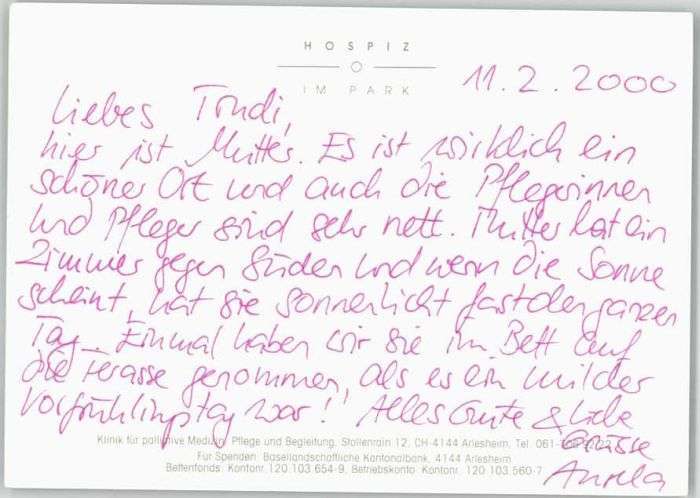 HOSPIZ
IM PARK
11.2.2000
Liebes Trudi,
hier ist Mutter. Es ist wirklich ein
schöner Ort und auch die Pflegerinnen
und Pfleger sind sehr nett. Mutter hat ein
Zimmer gegen Süden und wenn die Sonne
scheint, hat sie Sonnenlicht fast den ganzen
Tag. Einmal haben wir sie im Bett auf
die Terasse genommen, als es ein milder
Vorfrühlingstag war! Alles Gute & Liebe
Grüsse
Klinik für palliative Medizin, Pflege und Begleitung, Stollenrain 12, CH-4144 Arlesheim, Tel. 061-
Für Spenden: Basellandschaftliche Kantonalbank, 4144 Arlesheim
Bettenfonds: Kontonr. 120.103 654-9, Betriebskonto: Kontonr. 120 103 560-7